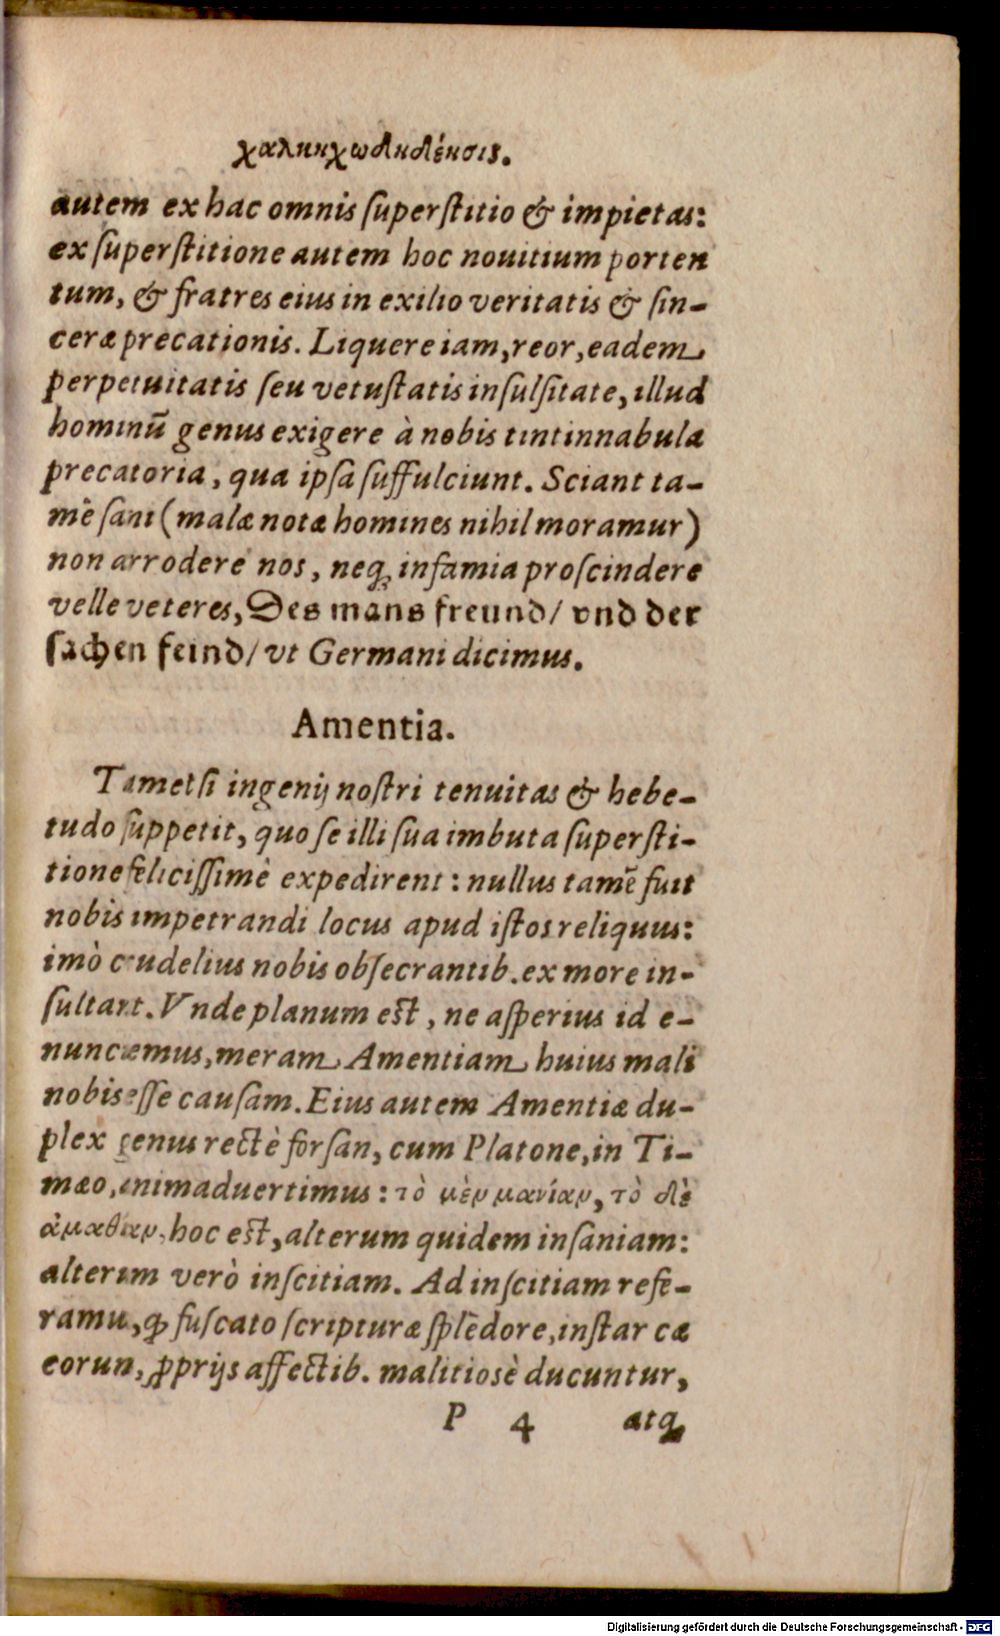 χαλκηχωδηδένσις.
autem ex hac omnis ſuperſtitio & impietas:
ex ſuperſtitione autem hoc nouitium porten
tum, & fratres eius in exilio veritatis & ſin-
ceræ precationis. Liquere iam, reor, eadem
perpetuitatis ſeu vetuſtatis inſulſitate, illud
hominū genus exigere à nobis tintinnabula
precatoria, qua ipſa ſuffulciunt. Sciant ta-
mē ſani (malæ notæ homines nihil moramur)
non arrodere nos, neq; infamia proſcindere
velle veteres, Des mans freund/ vnd der
ſachen feind/ vt Germani dicimus.
Amentia.
Tametſi ingenij noſtri tenuitas & hebe-
tudo ſuppetit, quo ſe illi ſua imbuta ſuperſti-
tione feliciſſimè expedirent: nullus tamē fuit
nobis impetrandi locus apud iſtos reliquus:
imò crudelius nobis obſecrantib. ex more in-
ſultant. Vnde planum eſt, ne aſperius id e-
nunciemus, meram Amentiam huius mali
nobis eſſe cauſam. Eius autem Amentiæ du-
plex genus rectè forſan, cum Platone, in Ti-
mæo, animaduertimus: τὸ μὲν μανίαν, τὸ δὲ
ἀμαθίαν, hoc eſt, alterum quidem inſaniam:
alterum verò inſcitiam. Ad inſcitiam refe-
ramus, ꝙ fuſcato ſcripturæ ſplēdore, inſtar cæ
corum, ꝓprijs affectib. malitiosè ducuntur,
P 4 atq;
Digitalisierung gefördert durch die Deutsche Forschungsgemeinschaft - DFG